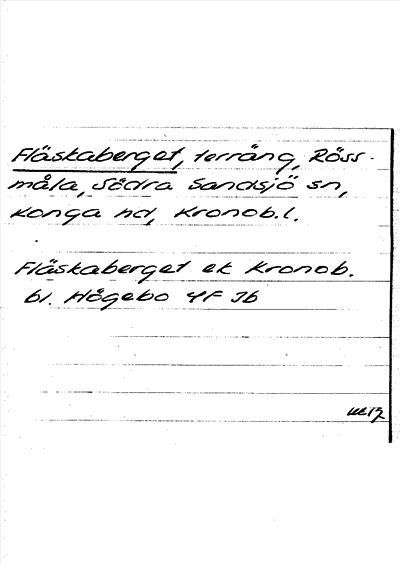 Fläskaberget, terräng, Röss-
måla, Södra Sandsjö sn,
Konga hd, Kronob.l.
Fläskaberget ek Kronob.
bl. Högebo 4F Jb